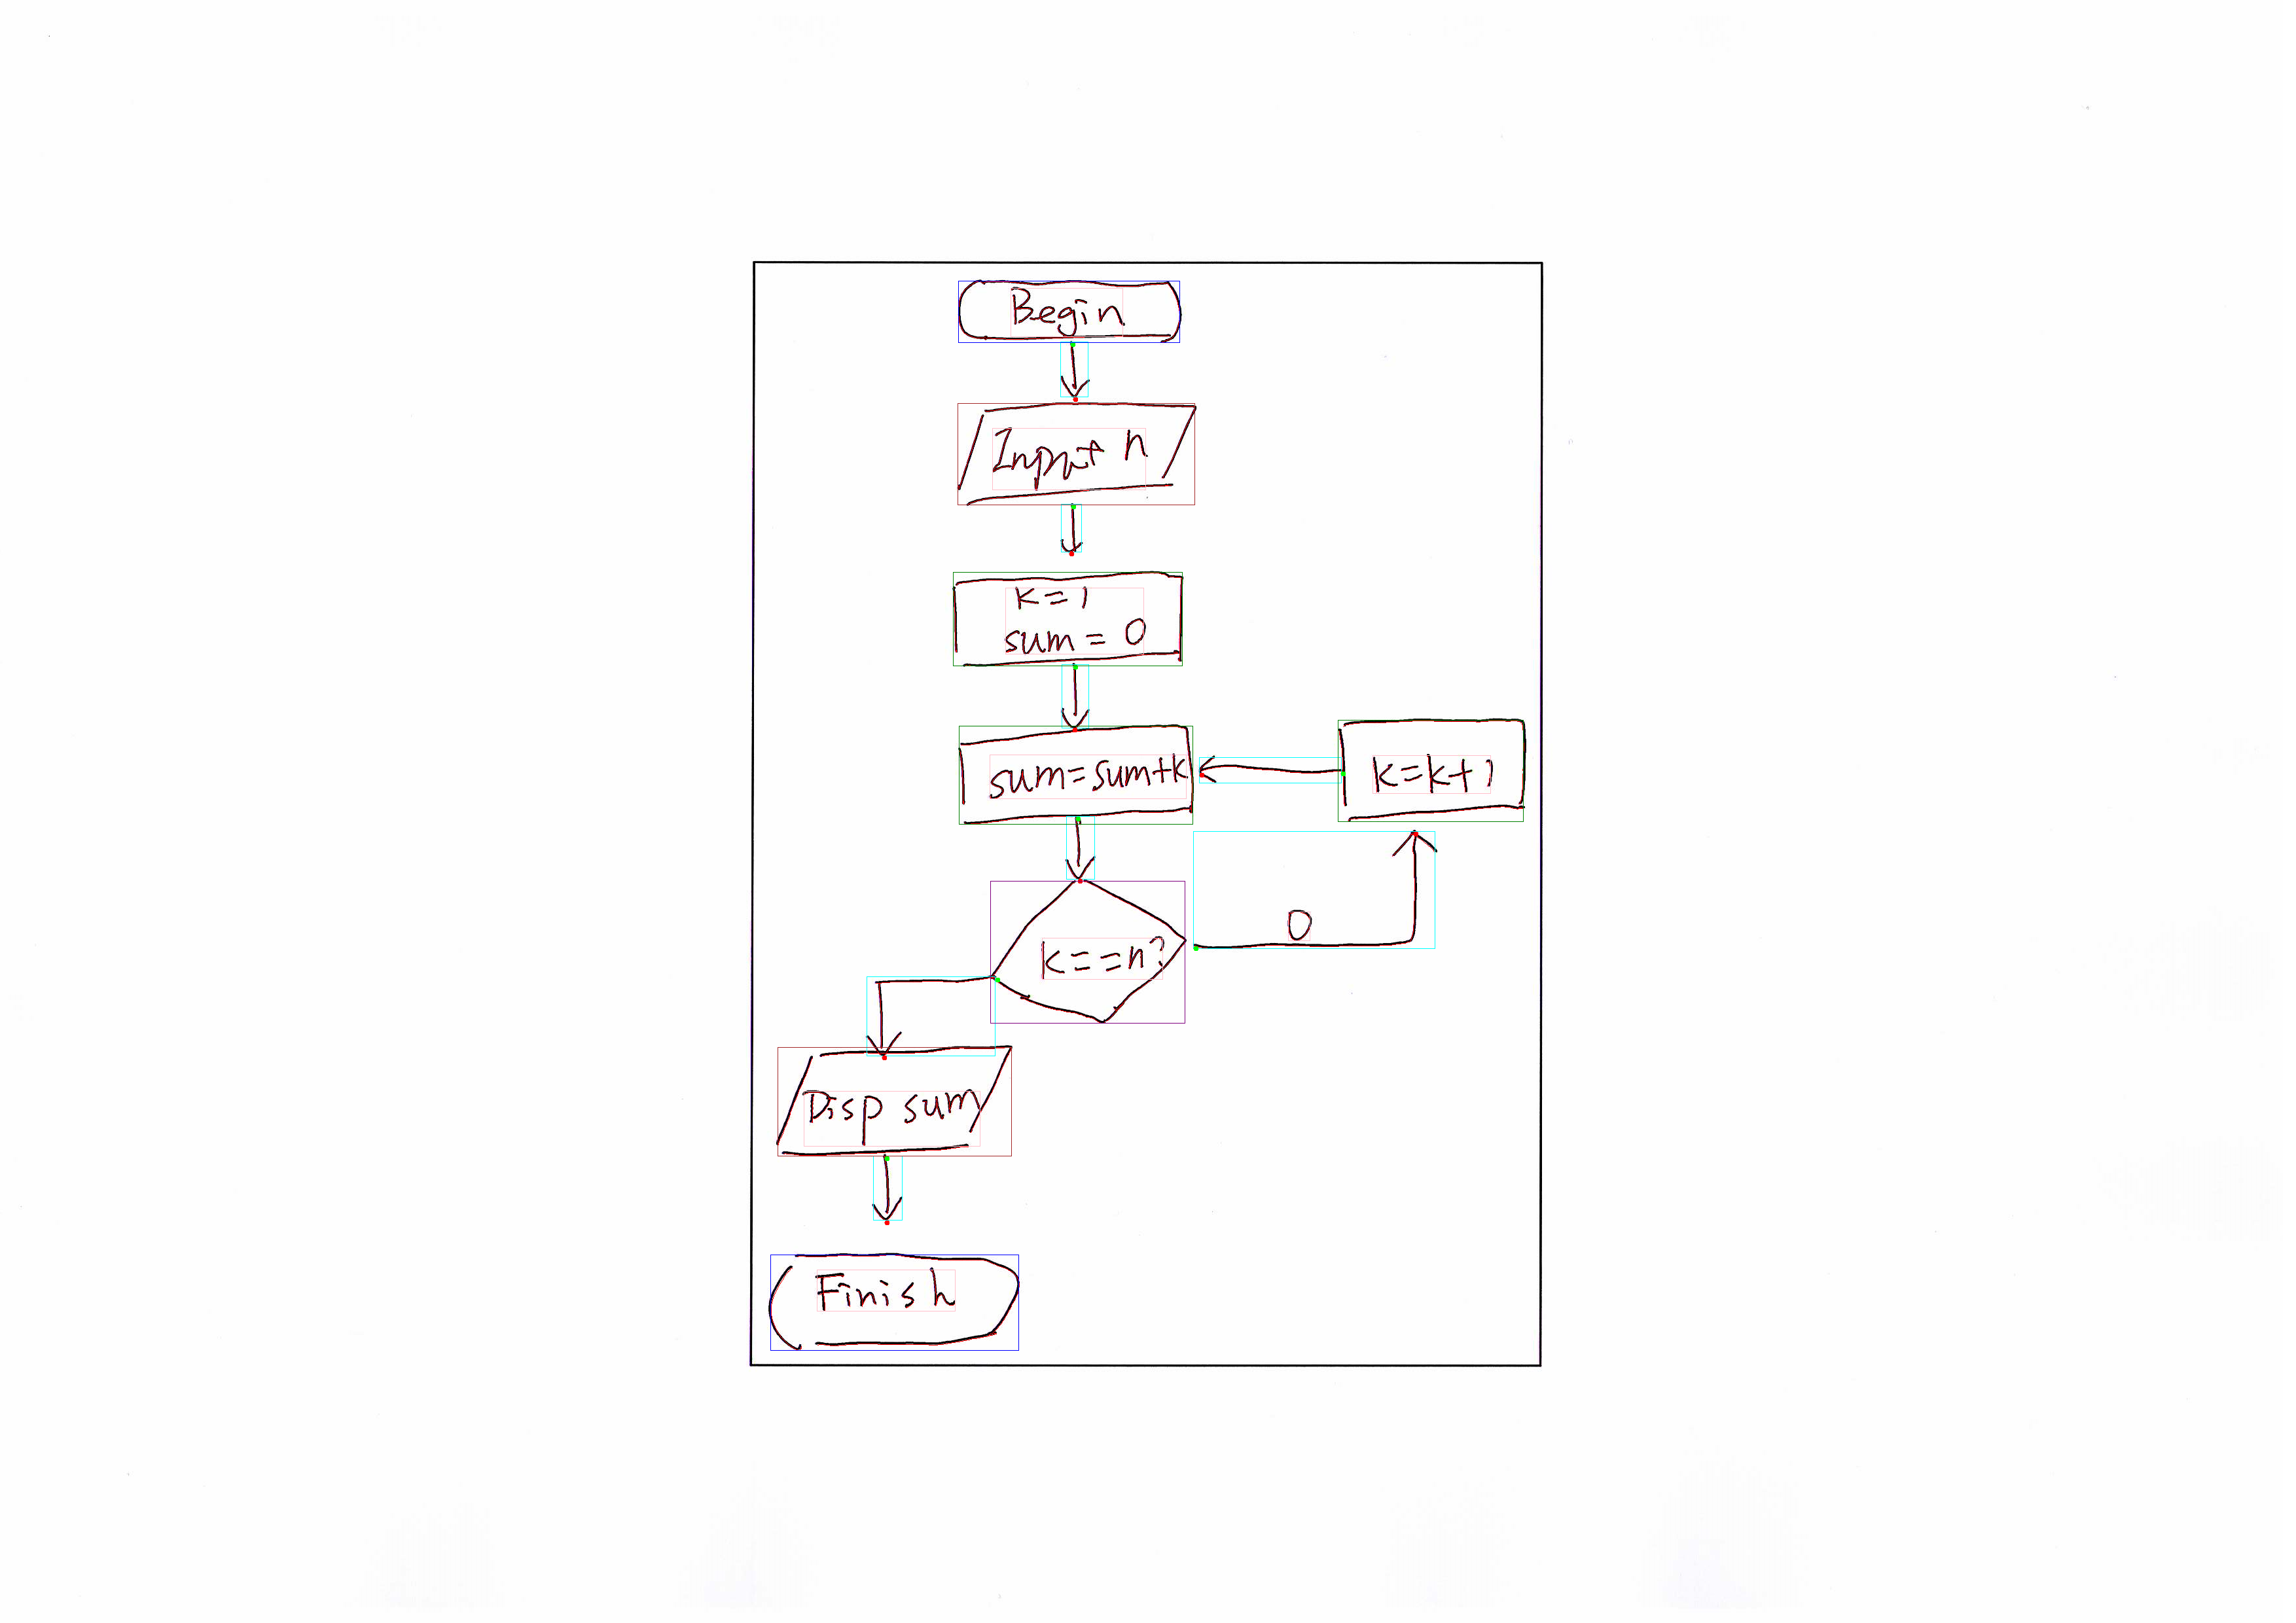 Begin
Input n
k=1
sum = 0
sum=sum+k
k=k+1
0
k==n?
Disp sum
Finish